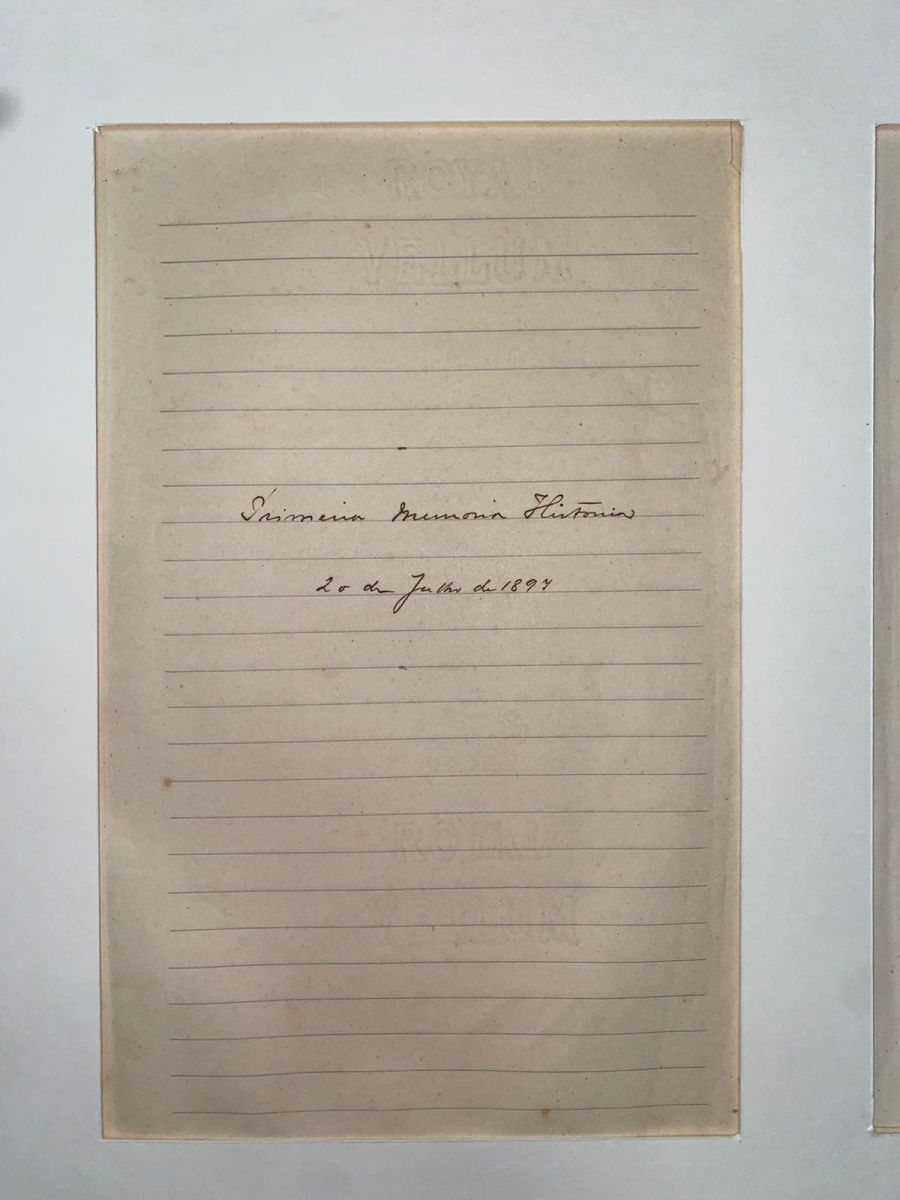 Primeira Memoria Historia
20 de Julho de 1897